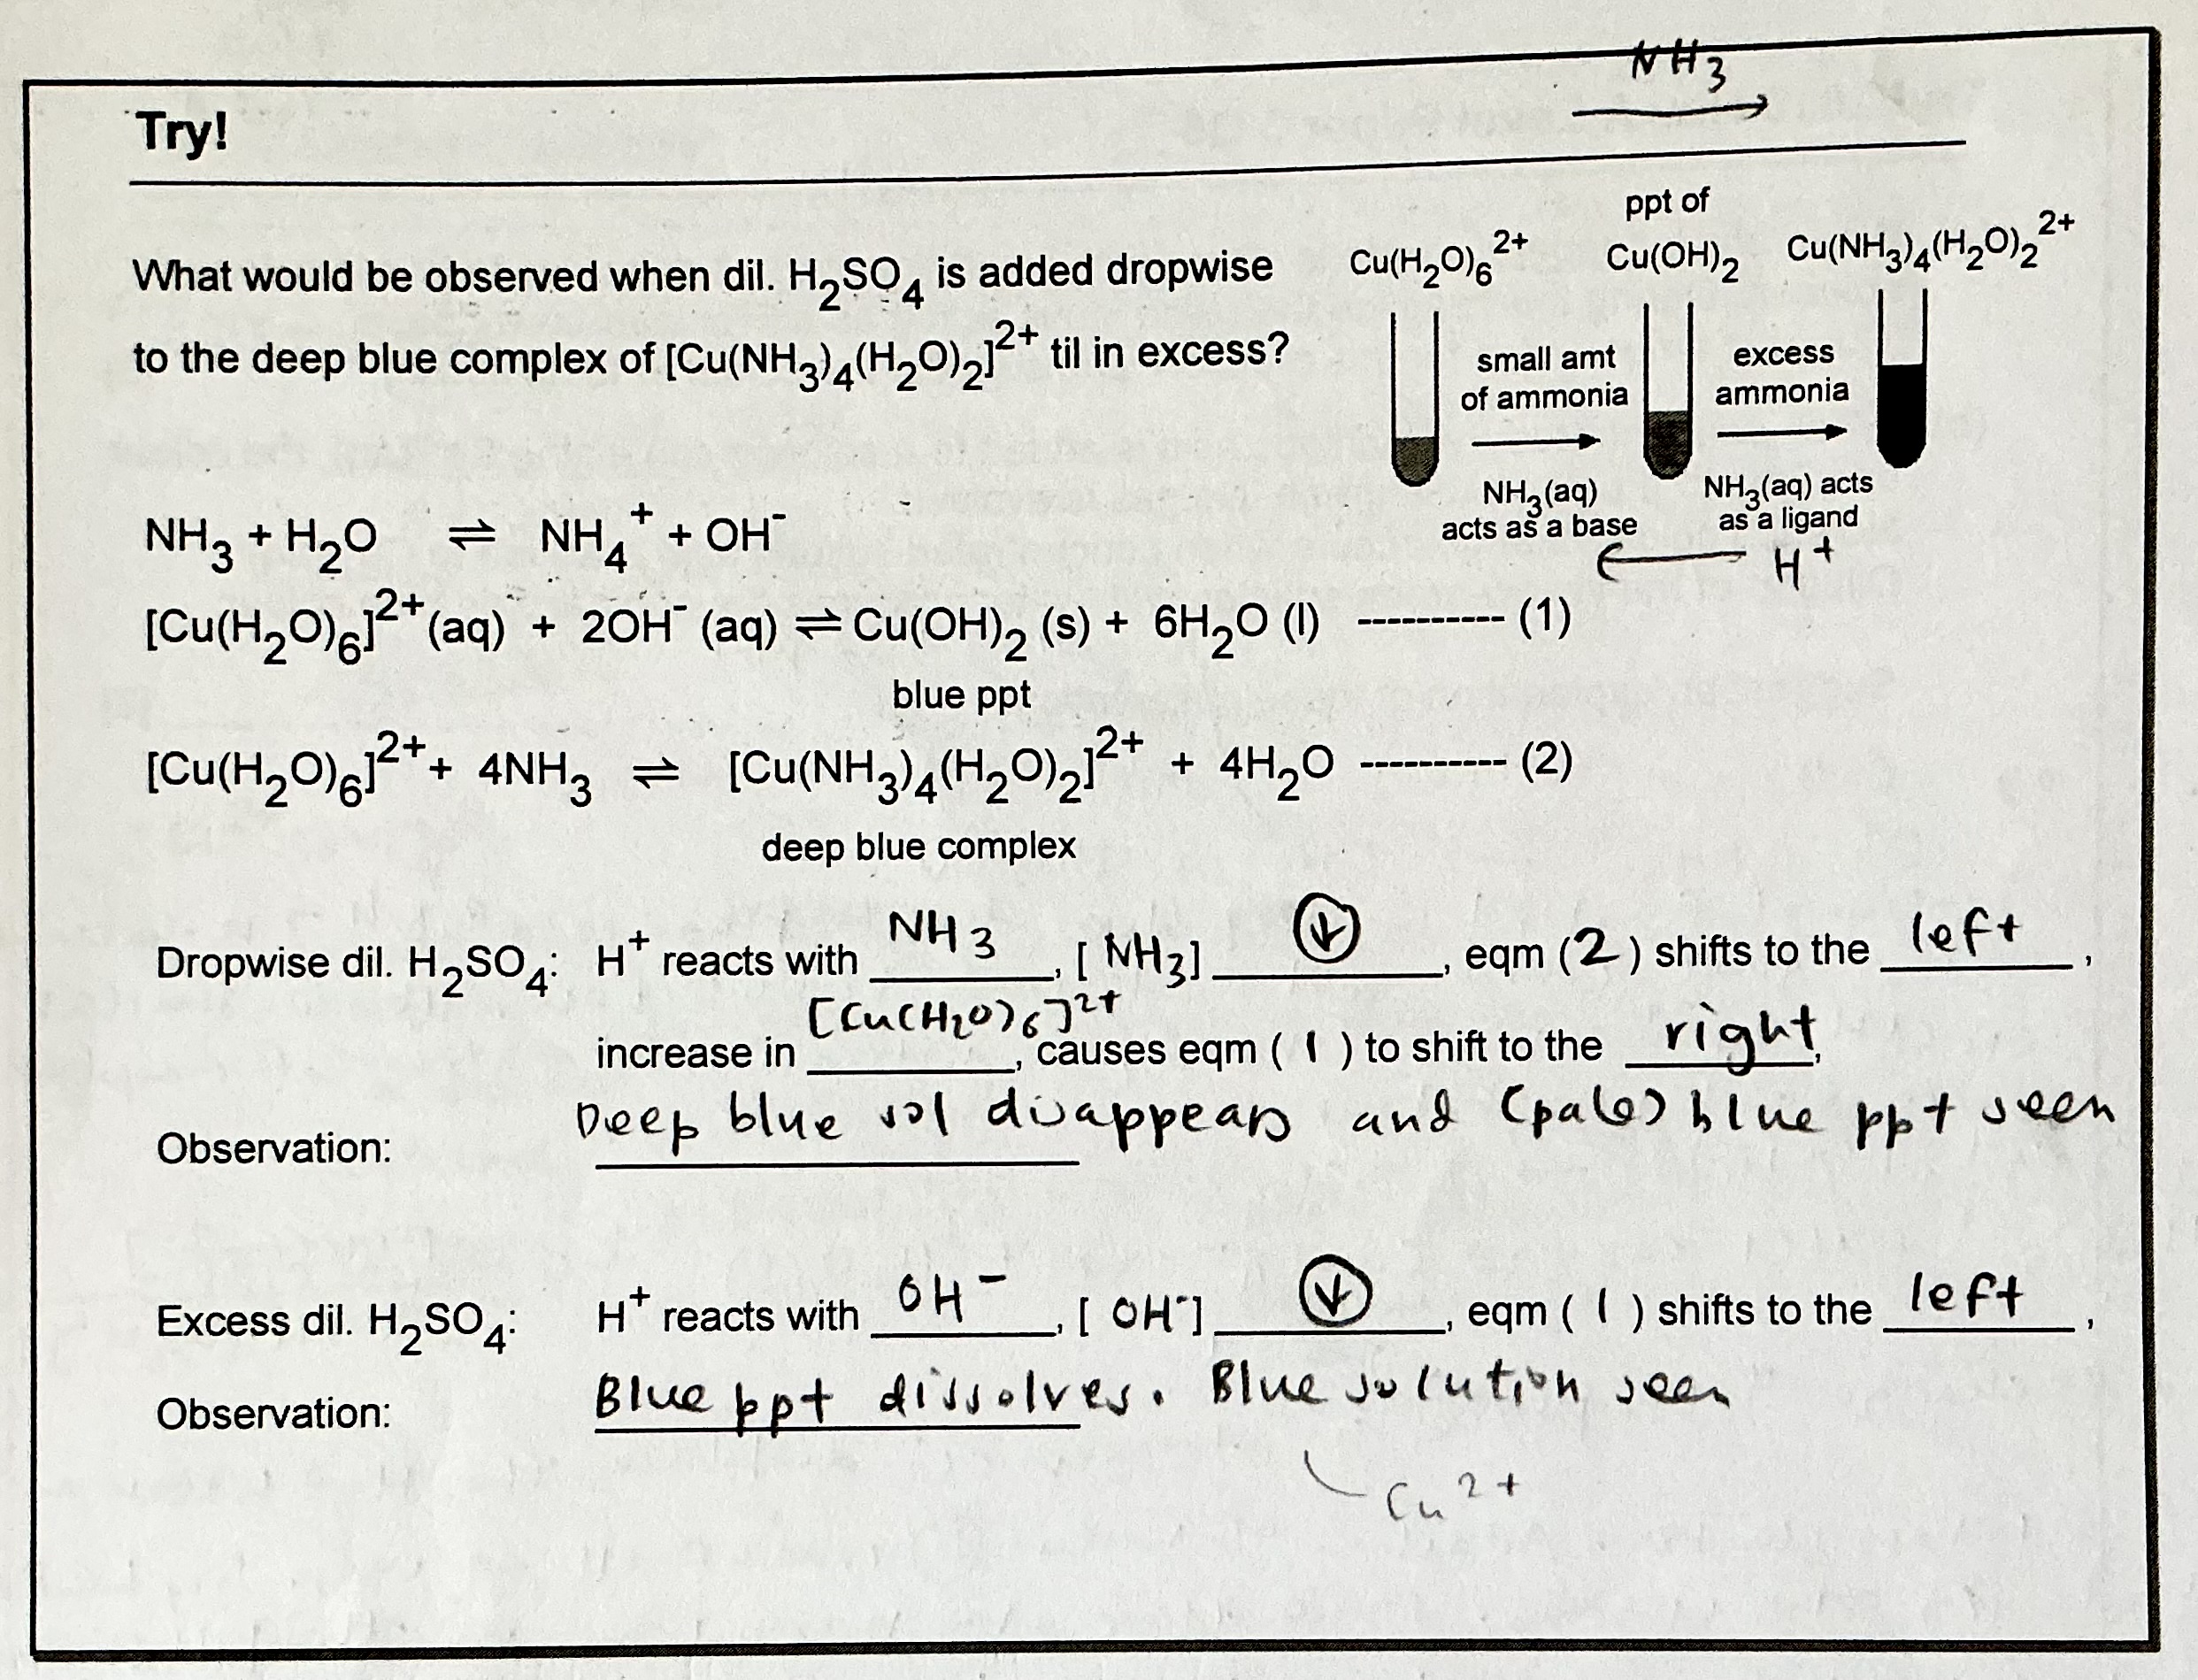 NH₃
Try!
ppt of
Cu(H₂O)₆²⁺ Cu(OH)₂ Cu(NH₃)₄(H₂O)₂²⁺
What would be observed when dil. H₂SO₄ is added dropwise
to the deep blue complex of [Cu(NH₃)₄(H₂O)₂]²⁺ til in excess?
small amt
of ammonia
excess
ammonia
NH₃(aq)
acts as a base
NH₃(aq) acts
as a ligand
← H⁺
NH₃ + H₂O ⇌ NH₄⁺ + OH⁻
[Cu(H₂O)₆]²⁺(aq) + 2OH⁻ (aq) ⇌ Cu(OH)₂ (s) + 6H₂O (l) ---------- (1)
blue ppt
[Cu(H₂O)₆]²⁺ + 4NH₃ ⇌ [Cu(NH₃)₄(H₂O)₂]²⁺ + 4H₂O ---------- (2)
deep blue complex
Dropwise dil. H₂SO₄: H⁺ reacts with NH₃, [NH₃] ↓, eqm (2) shifts to the left,
increase in [Cu(H₂O)₆]²⁺, causes eqm (1) to shift to the right,
Observation: Deep blue sol disappears and (pale) blue ppt seen
Excess dil. H₂SO₄: H⁺ reacts with OH⁻, [OH⁻] ↓, eqm (1) shifts to the left,
Observation: Blue ppt dissolves. Blue solution seen
Cu²⁺